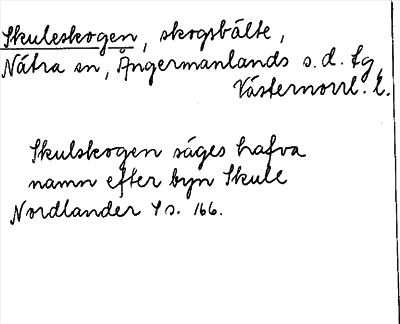 Skuleskogen, skogsbälte,
Nätra sn, Ångermanlands s. d. tg,
Västernorrl. l.
Skulskogen säges hafva
namn efter byn Skule
Nordlander s. 166.